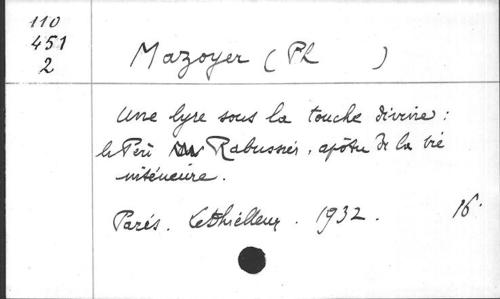 110
451
2
Mazoyer (Ph )
Une lyre sous la touche divine :
le Père Rabussier, apôtre de la vie
intérieure.
Paris. Lethielleux. 1932. 16°